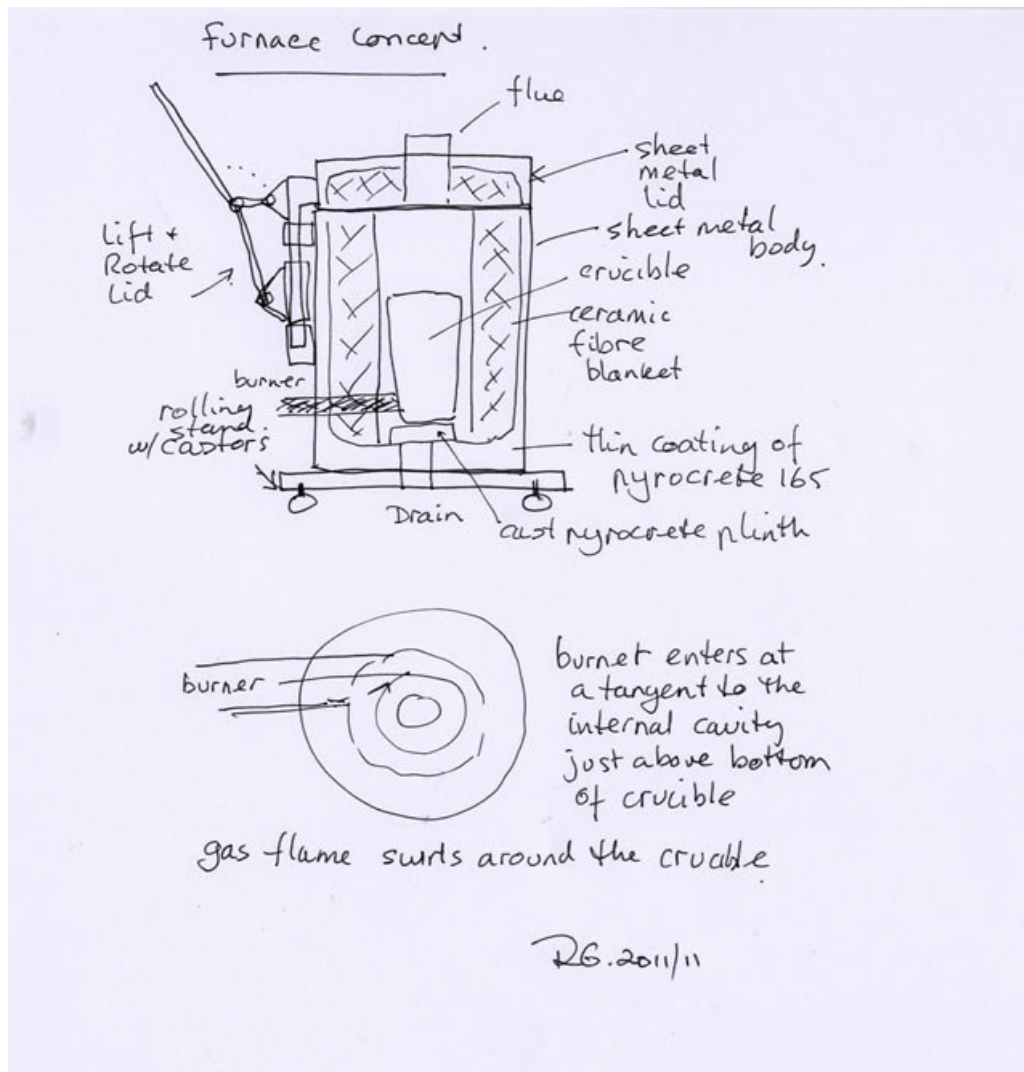 furnace concept.
flue
sheet
metal
lid
sheet metal
body.
Lift +
Rotate
Lid
crucible
ceramic
fibre
blanket
burner
rolling
stand
w/castors
thin coating of
pyrocrete 165
Drain
cast pyrocrete plinth
burner
burner enters at
a tangent to the
internal cavity
just above bottom
of crucible
gas flame swirls around the crucible.
RG.2011/11